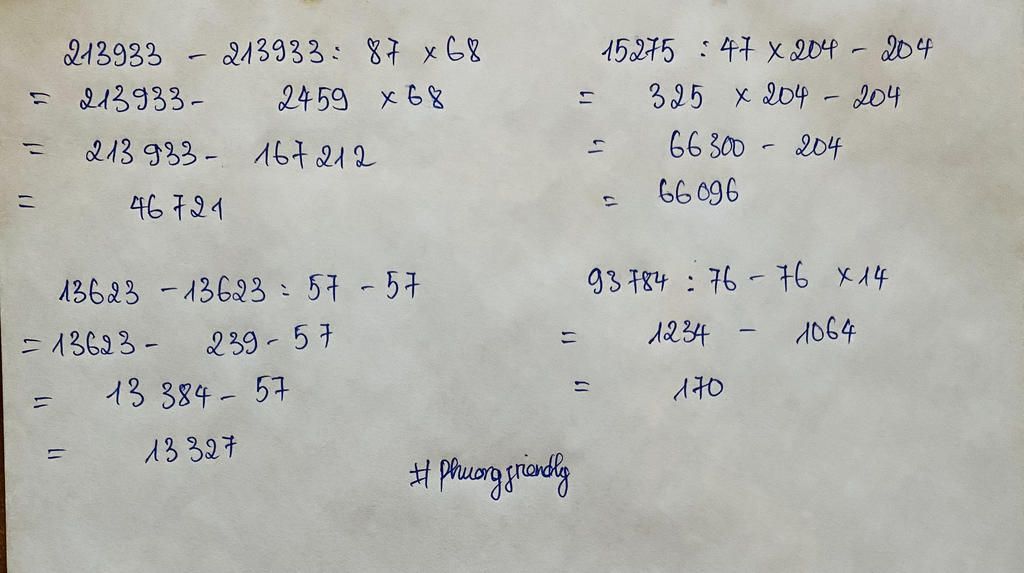 213933 - 213933 : 87 x 68
= 213933 - 2459 x 68
= 213933 - 167212
= 46721
15275 : 47 x 204 - 204
= 325 x 204 - 204
= 66300 - 204
= 66096
13623 - 13623 : 57 - 57
= 13623 - 239 - 57
= 13384 - 57
= 13327
93784 : 76 - 76 x 14
= 1234 - 1064
= 170
# Phuongfriendly